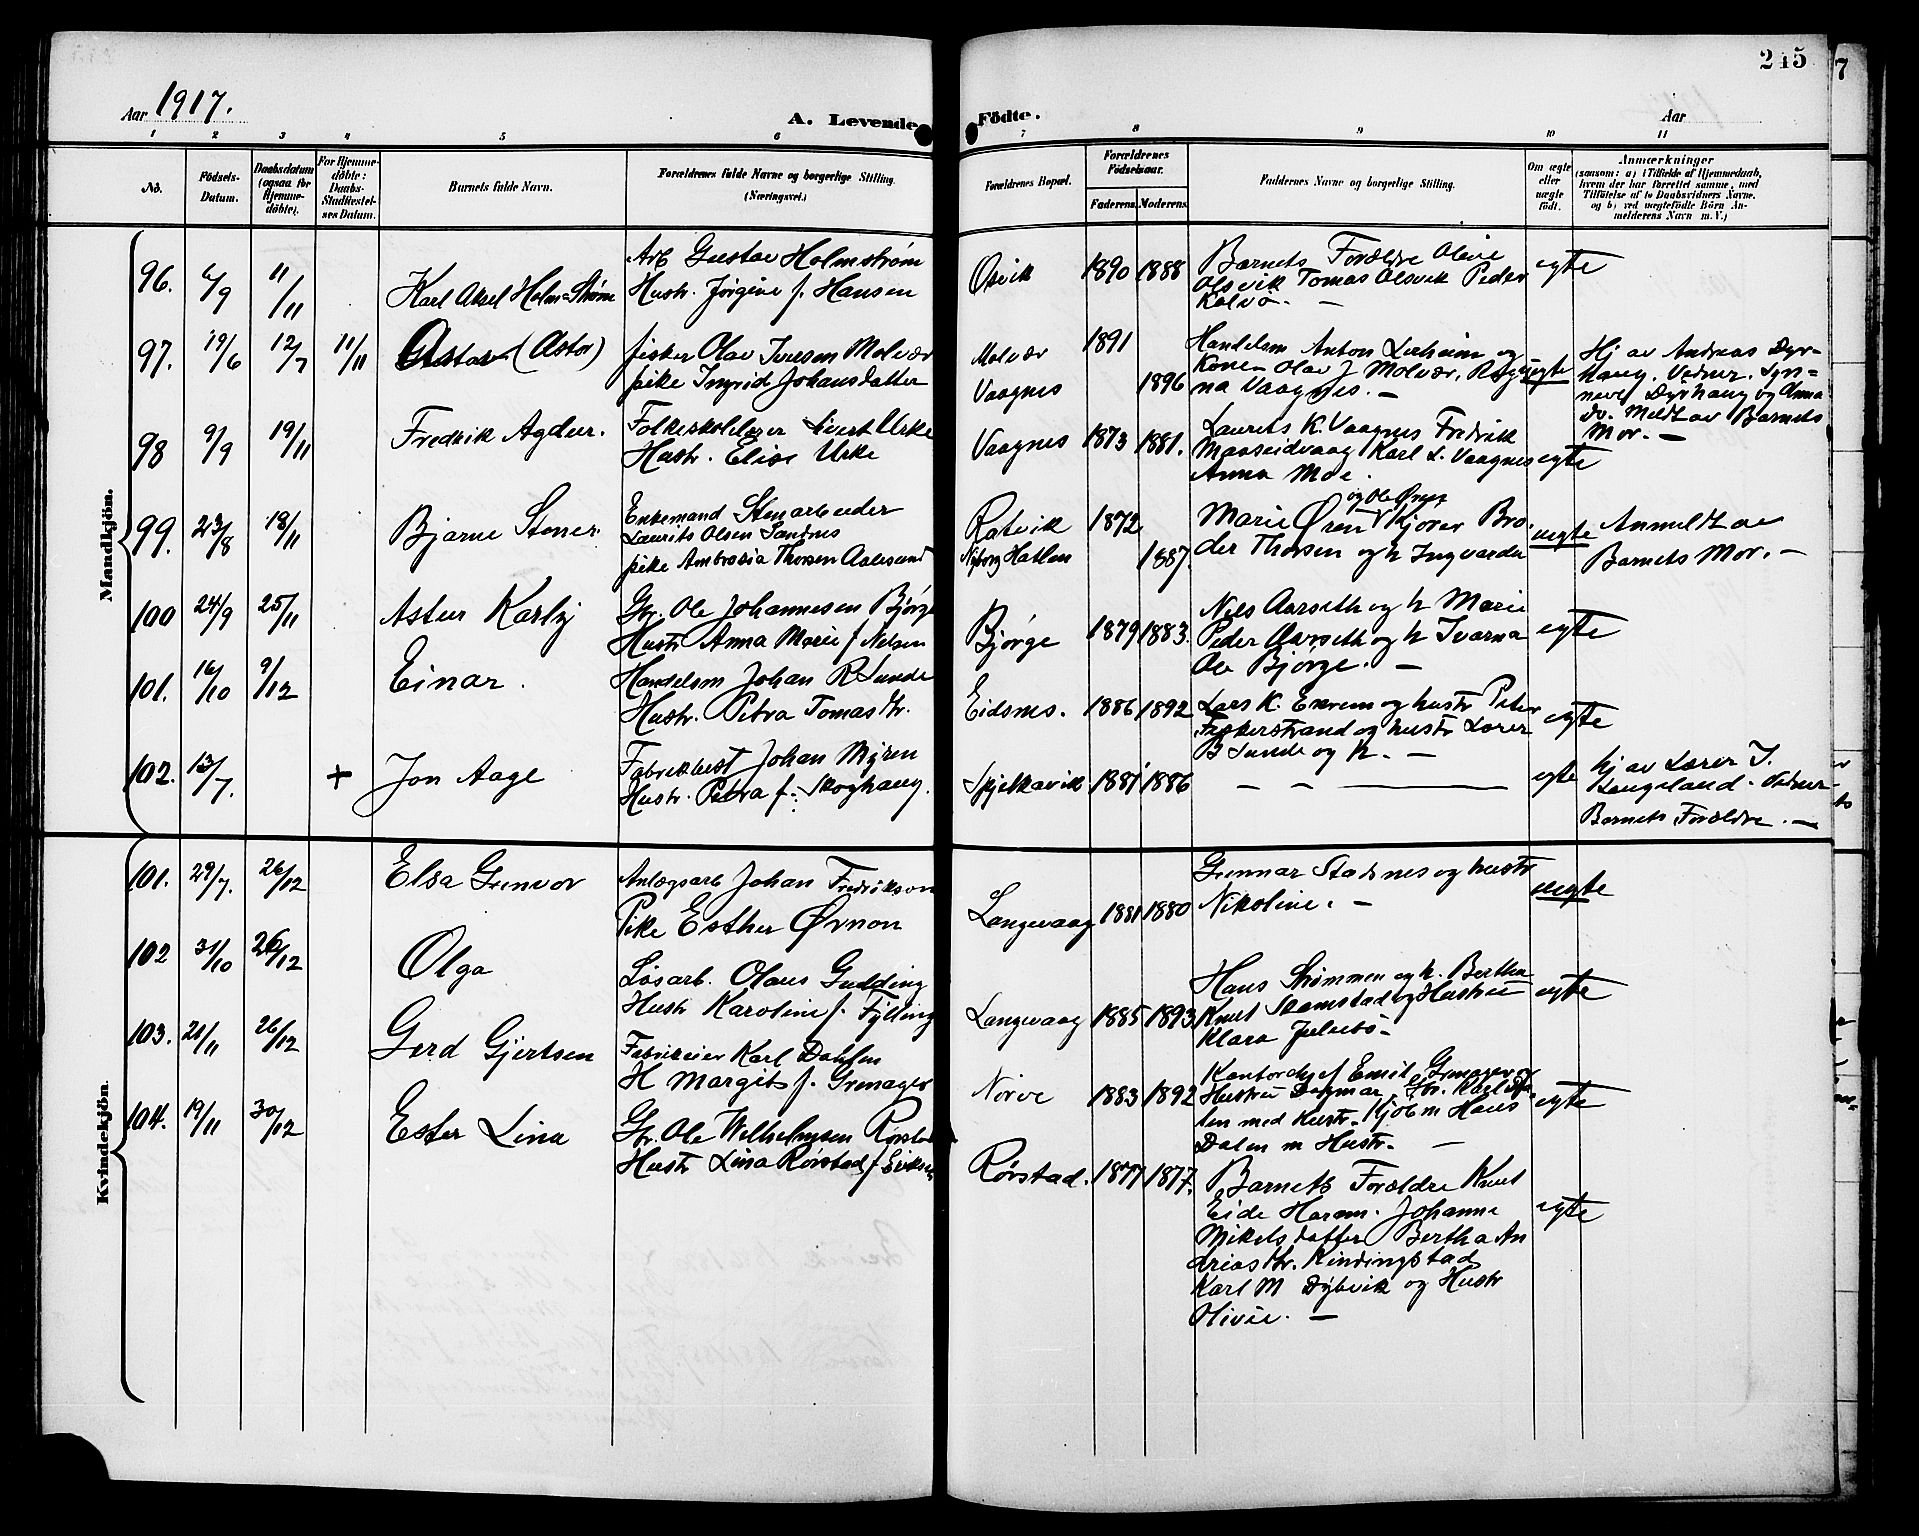 245
Aar 1917.
A. Levende Födte.
Aar
1 2 3 4 5 6 7 8 9 10 11
No.
Födsels-Datum.
Daabsdatum (ogsaa for Hjemmedöbte).
For Hjemmedöbte: Daabs-Stadfæstelses Datum.
Barnets fulde Navn.
Forældrenes fulde Navne og borgerlige Stilling. (Næringsvei.)
Forældrenes Bopæl.
Forældrenes Födselsaar.
Faderens. Moderens.
Faddernes Navne og borgerlige Stilling.
Om ægte eller uægte födt.
Anmærkninger
(saasom: a) i Tilfælde af Hjemmedaab, hvem der har forrettet samme, med Tilföielse af to Daabsvidners Navne, og b) ved uægtefödte Börn Anmelderens Navn m. V.)
Mandkjön.
96. 6/9 11/11 Karl Aksel Holmstrøm
Arb Gustav Holmstrøm
Hustr. Jørgine f. Hansen
Osvik 1890 1888
Barnets Forældre Oline
Olsvik Tomas Olsvik Peder
Kalvø. —
egte
97. 19/6 12/7 11/11 (Astor)
fisker Olav Iversen Molvær
pike Ingrid Johansdatter
Molvær 1891
Vaagnes 1896
Handelsm Anton Lerheim og
Kone Olav J Molvær,
na Vaagnes. —
uegte
Hj av Andreas Dyr-
haug. Vidner. Syn-
neve Dyrhaug og Anna
do. Meldt av Barnets
Mor. —
98 9/9 19/11 Fredrik Agdur.
Folkeskolelærer Sivert Urke
Hustr. Elise Urke
Vaagnes 1873 1881.
Laurits K. Vaagnes Fredrik
Maaseidvaag Karl L. Vaagnes
Anna Moe.
egte
99. 23/8 18/11 Bjarne Stener
Enkemand Stenarbeider
Laurits Olsen Sandnes
pike Ambrosia Thorsen Aalesund
Ratvik 1872
Nyborg Hatlen 1887.
og Ole Øren
Marie Øren Kjører Bro-
der Thorsen og h Ingvarda
uegte
Anmeldt av
Barnets Mor. —
100 24/9 25/11 Astur Karly
Gbr. Ole Johannesen Bjørge
Hustr Anna Marie f Nelsen
Bjørge 1879 1883.
Nils Aarseth og h Marie
Peder Aarseth og h Ivarna
Ole Bjørge. —
egte
101. 16/10 9/12 Einar.
Handelsm Johan R Sunde
Hustr. Petra Tomasdtr.
Eidsnes. 1886 1892
Lars K. Exrem og hustr Peter
Fiskerstrand og hustr Lærer
B Sunde og h. —
egte
102. 13/7. + Jon Aage
Fabrikbest Johan Myren
Hustr. Petra f. Skoghaug.
Spjelkavik 1881 1886
— — —
egte
hj av Lærer J.
Langeland. Vidner
Barnets Forældre. —
Kvindekjön.
101. 29/7. 26/12 Elsa Gunvor
Anlægsarb Johan Fredrikson
Pike Esther Ørnon
Langevaag 1881 1880
Gunnar Stadsnes og hustr
Nikoline. —
uegte
102 31/10 26/12 Olga
Løsarb. Olaus Gudding
Hustr Karoline f. Fylling
Langevaag 1885 1893
Hans Strømmen og h. Berthe
Knut Stamstad og Hustru
Klara Julebø —
egte
103. 21/11 26/12 Gerd Gjertsen
Fabrikeier Karl Dahlen
H Margit f. Grenager
Nørve 1883 1892
Kontorchef Emil Grenager og
Hustru Dagmar,
len med hustr. Kjøbm Hans
Dalen m Hustr. —
egte
104. 19/11 30/12 Ester Lina
Gbr. Ole Wilhelmsen Rørstad
Hustr Lina Rørstad f Eriksen
Rørstad. 1877 1877.
Barnets Forældre Knut
Eide Haram. Johanne
Mikelsdatter Bertha An
dreasdtr. Kindingstad
Karl M Dybvik og Hustr
Olivie. —
egte